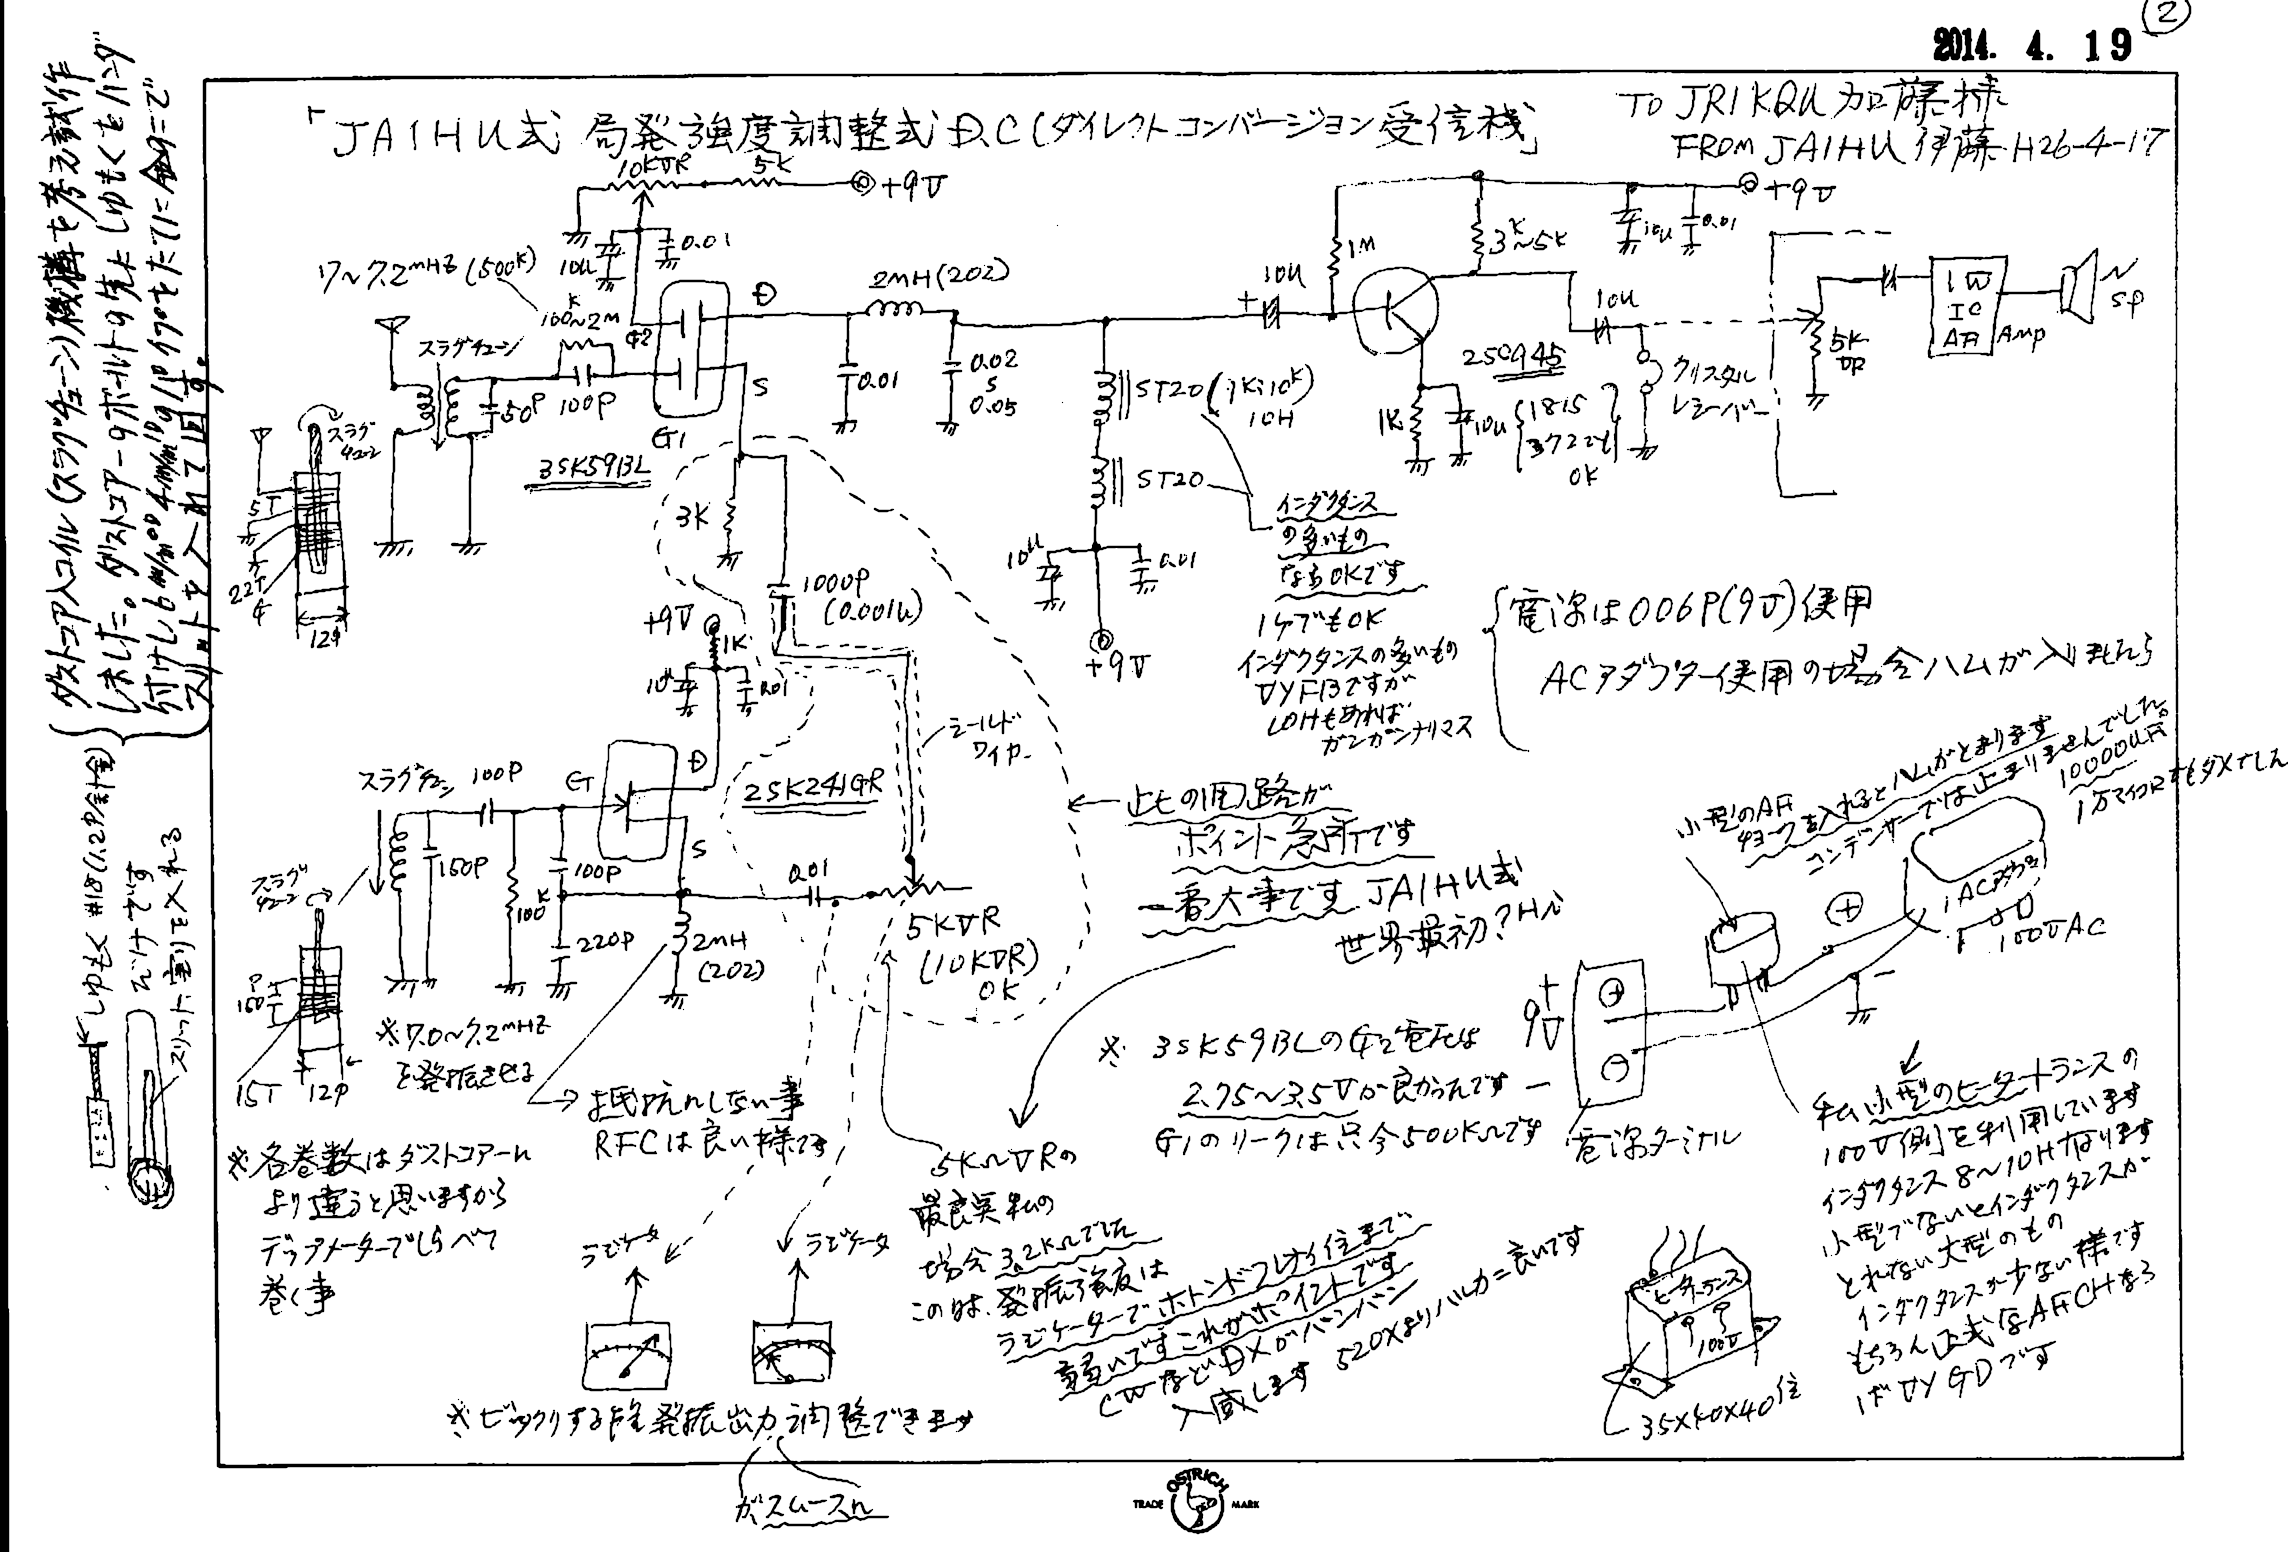 ②
2014. 4. 19
TO JR1KQU 加藤様
FROM JA1HU 伊藤 H26-4-17
「JA1HU式 局発強度調整式D.C(ダイレクトコンバージョン受信機」
10KVR
5K
+9V
10u
0.01
7~7.2MHZ
(500K)
100K~2M
G2
D
S
G1
3SK59BL
スラグチューン
50P
100P
2mH(202)
0.01
0.02
S
0.05
スラグ
チューン
5T
22T
12φ
3K
1000P
(0.001u)
シールド
ワイヤー
10u
1M
3K~5K
+9V
10u
0.01
2SC945
1815
372でも
OK
1K
10u
10u
クリスタル
レシーバー
5K
VR
1W
IC
AF
Amp
SP
ST20(1K:10K)
10H
ST20
10u
0.01
+9V
インダクタンス
の多いもの
ならOKです
1ケでもOK
インダクタンスの多いもの
VYFBですが
10Hもあれば
ガンガンナリマス
電源は006P(9V)使用
ACアダプター使用の場合ハムが入りましたら
小型のAF
チョークを入れるとハムがとまります
コンデンサーでは止まりませんでした。
10000uF
1万マイクロでもダメでした
ACアダプター
100VAC
+9V
1K
10u
0.01
スラグチューン
100P
G
D
S
2SK241GR
150P
100K
100P
220P
2mH
(202)
0.01
5KVR
(10KVR)
OK
スラグ
チューン
150P
15T
12φ
※7.0~7.2MHZ
を発振させる
抵抗にしない事
RFCは良い様です
※各巻数はダストコアーに
より違うと思いますから
ディップメーターでしらべて
巻く事
ラジケータ
ラジケータ
※ビックリする程発振出力調整できます
がスムースに
此の回路が
ポイント急所です
一番大事です JA1HU式
世界最初?Hi
5KΩVRの
最良点私の
場合3.2KΩでした
この時、発振強度は
ラジケーターでホトンドフレナイ位まで
弱いですこれがポイントです
CWなどDXがバンバン
入感します 520Xよりハルカニ良いです
※ 3SK59BLのG2電圧は
2.75~3.5Vが良かったです
G1のリークは只今500KΩです
+
9V
電源ターミナル
私小型のヒータートランスの
100V側を利用しています
インダクタンス8~10Hなります
小型でないとインダクタンスが
とれない大型のもの
インダクタンスが少ない様です
もちろん正式なAFCHなら
ばVYGDです
ヒータートランス
100V
35×40×40位
ダストコア入コイル(スラグチューン)機構を考え試作
しました。ダストコアーのボルトの先にしゅもくをハンダ
スリットを入れて回す。
しゅもく #18(1.2φ針金)
スリット室りを入れる
OSTRICH
TRADE MARK